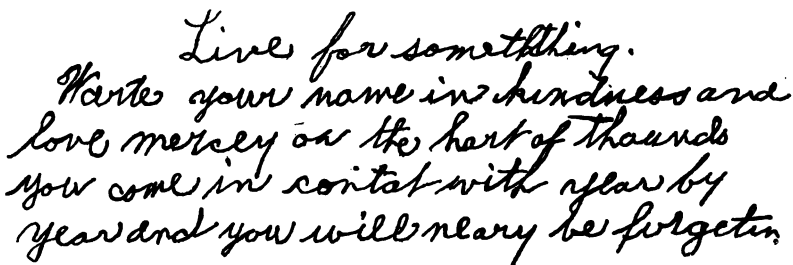 Live for somethhing.
Warte your name in kindness and
love mercey on the hart of thounds
you come in contat with year by
year and you will neary be forgeten